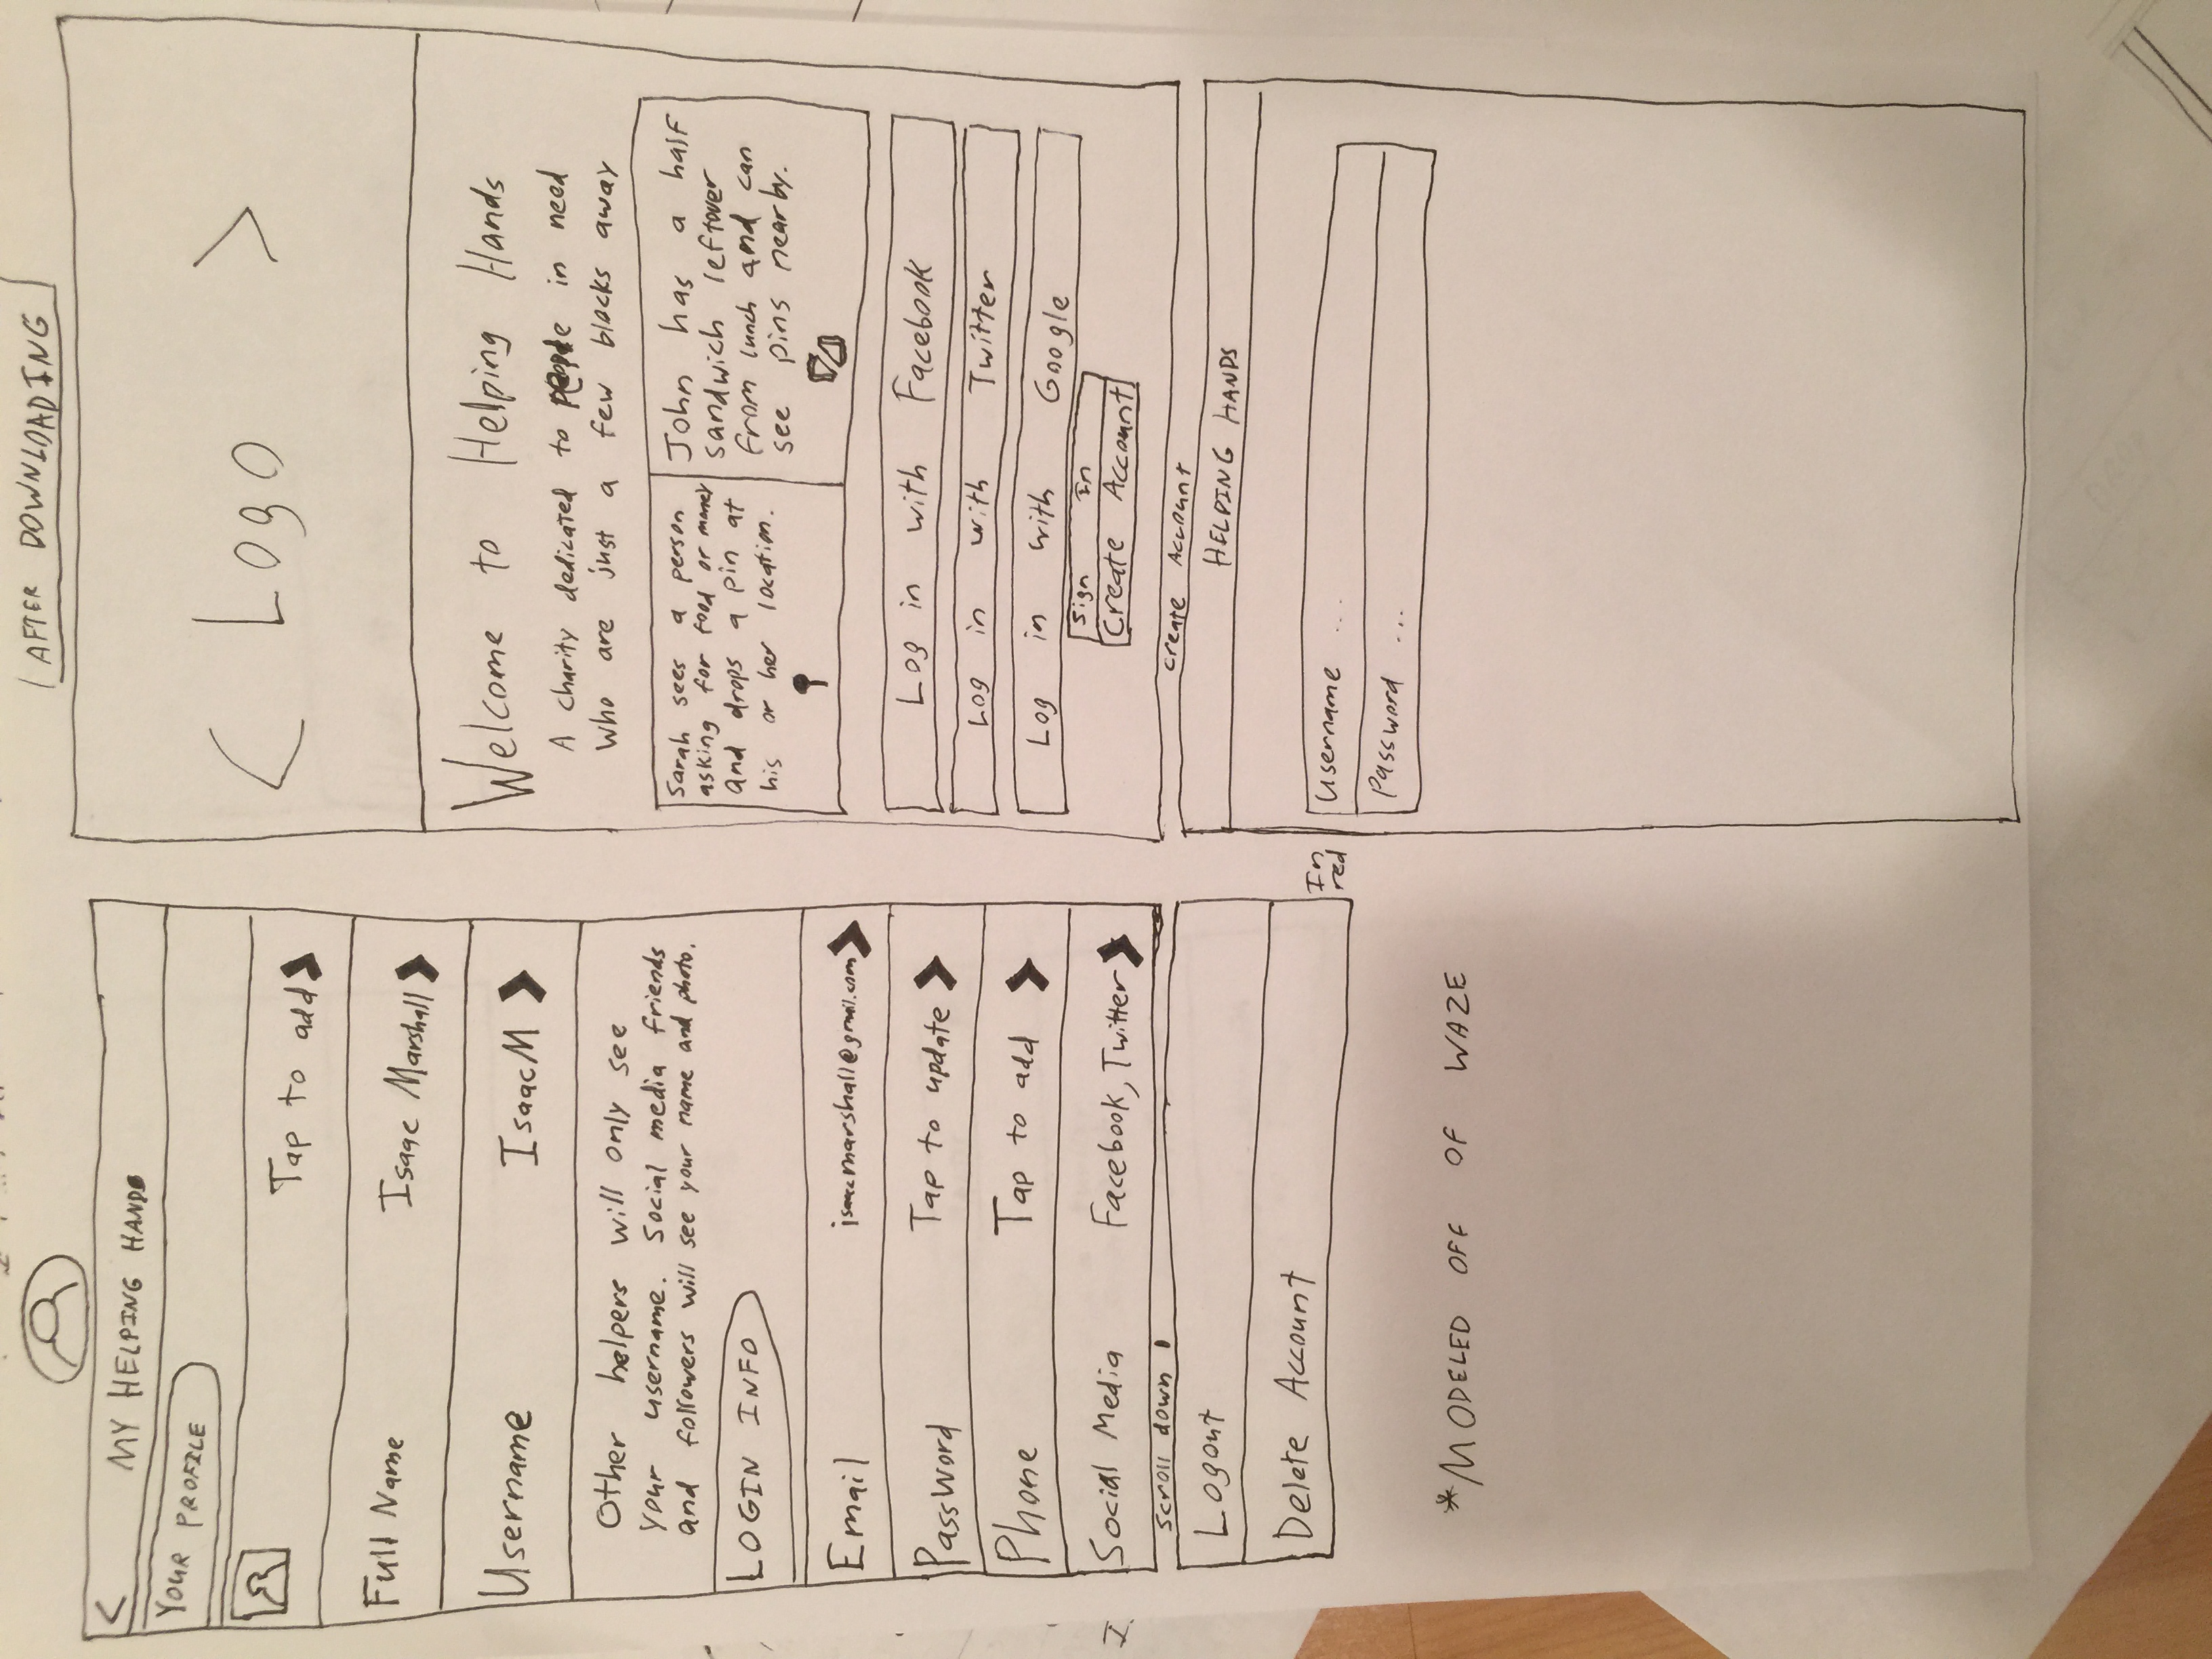 MY HELPING HANDS
YOUR PROFILE
Tap to add
Full Name Isaac Marshall
Username IsaacM
Other helpers will only see
your username. Social media friends
and followers will see your name and photo.
LOGIN INFO
Email isaacmarshall@gmail.com
Password Tap to update
Phone Tap to add
Social Media Facebook, Twitter
scroll down
Logout
Delete Account
In
red
*MODELED OFF OF WAZE
AFTER DOWNLOADING
< Logo >
Welcome to Helping Hands
A charity dedicated to people in need
who are just a few blocks away
Sarah sees a person
asking for food or money
and drops a pin at
his or her location.
John has a half
sandwich leftover
from lunch and can
see pins nearby.
Log in with Facebook
Log in with Twitter
Log in with Google
Sign In
Create Account
Create Account
HELPING HANDS
Username ...
Password ...